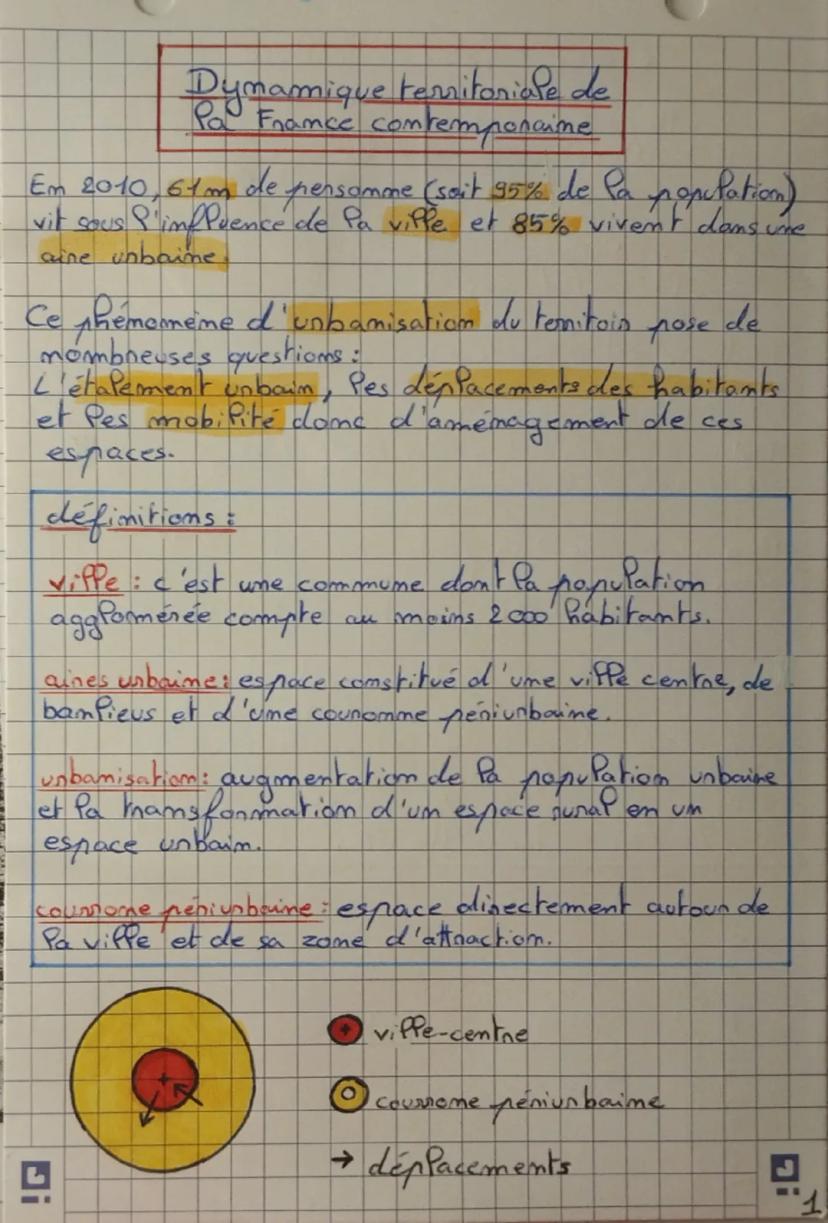 Dynamique territoriale de
la France contemporaine
En 2010, 61m de personne (soit 95% de la population)
vit sous l'influence de la ville et 85% vivent dans une
aire urbaine.
Ce phénomème d'urbanisation du territoir pose de
nombreuses questions :
L'étalement urbain, les déplacements des habitants
et les mobilité donc d'aménagement de ces
espaces.
définitions :
ville : c'est une commune dont la population
agglomérée compte au moins 2 000 habitants.
aires urbaine : espace constitué d'une ville centre, de
banlieus et d'une couronne périurbaine.
urbanisation : augmentation de la population urbaine
et la transformation d'un espace rural en un
espace urbain.
courrone périurbaine : espace directement autour de
la ville et de sa zone d'attraction.
ville-centre
courrone périurbaine
→ déplacements
1